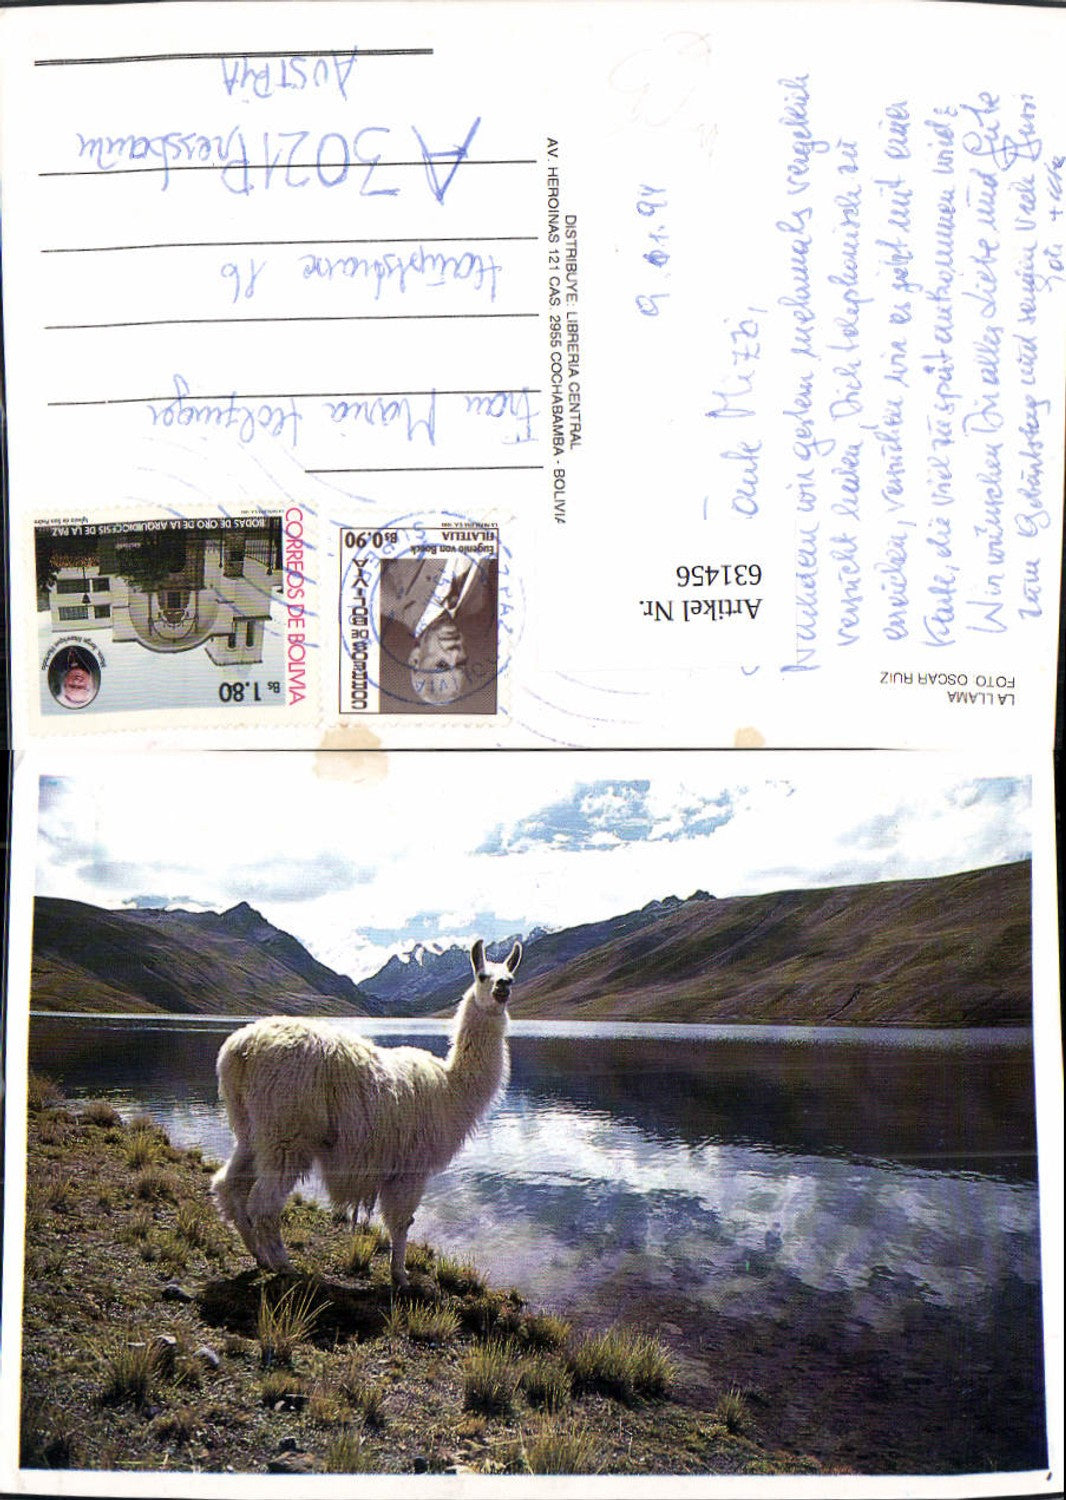 LA LLAMA
FOTO OSCAR RUIZ
Artikel Nr.
631456
9.01.94
Tante Mizzi,
Nachdem wir gestern mehrmals vergeblich
versucht haben, Dich telephonisch zu
erreichen versuchen wir es jetzt mit einer
Karte, die viel zu spät ankommen wird:
Wir wünschen Dir alles Liebe und Gute
zum Geburtstag und senden viele Bussi
DISTRIBUYE: LIBRERIA CENTRAL
AV. HEROINAS 121 CAS 2955 COCHABAMBA - BOLIVIA
CORREOS DE BOLIVIA
Bs 0.90
Eugenio von Boeck
FILATELIA
CORREOS DE BOLIVIA
Bs 1.80
BODAS DE ORO DE LA ARQUIDIOCESIS DE LA PAZ
Iglesia de San Pedro
Frau Maria
Hauptstrasse 16
A 3021 Pressbaum
AUSTRIA